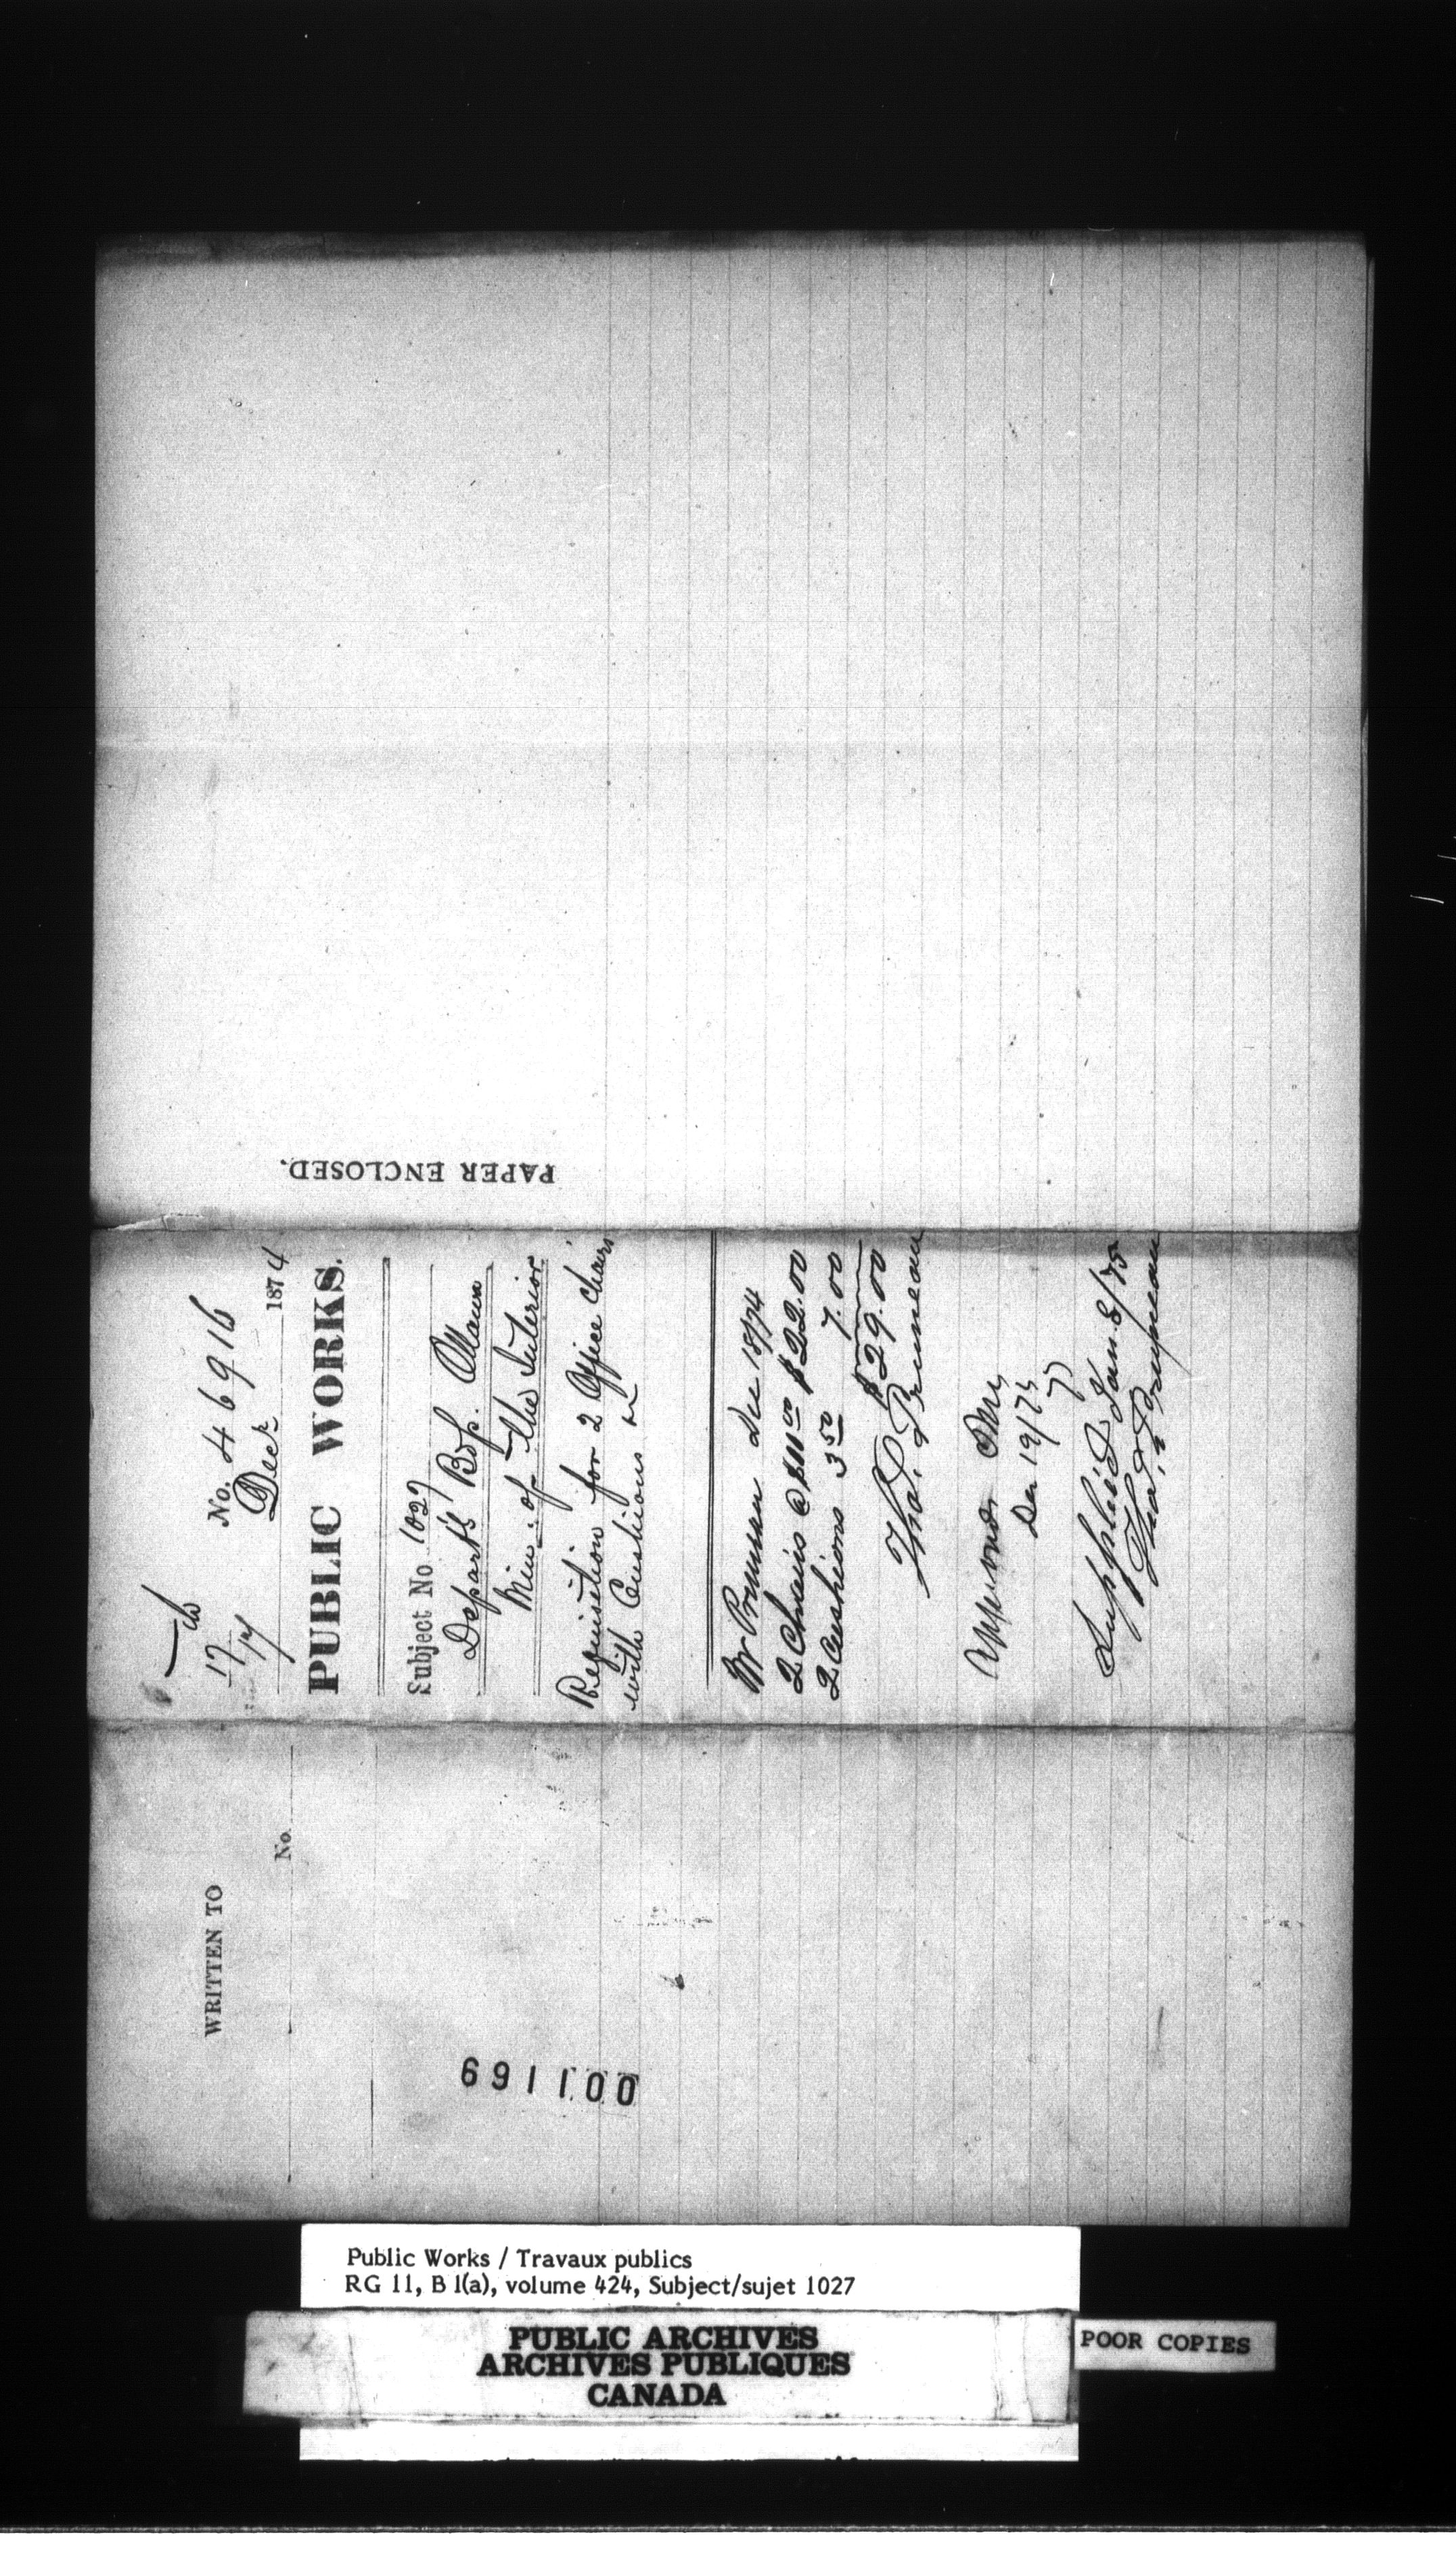 PAPER ENCLOSED.
No. 46916
Decr 1874
17
PUBLIC WORKS.
Subject No 1027
Departl Bgs. Ottawa
Min. of the Interior
Requisition for 2 Office Chairs
with Cushions &c
Mr Pruneau Dec 18/74
2 Chairs @ $11.00 $22.00
2 Cushions 3.50 7.00
$29.00
Pruneau
Approved
Dec 19/74
Supplied Jan 8/75
Pruneau
WRITTEN TO
No.
691100
Public Works / Travaux publics
RG 11, B 1(a), volume 424, Subject/sujet 1027
PUBLIC ARCHIVES
ARCHIVES PUBLIQUES
CANADA
POOR COPIES